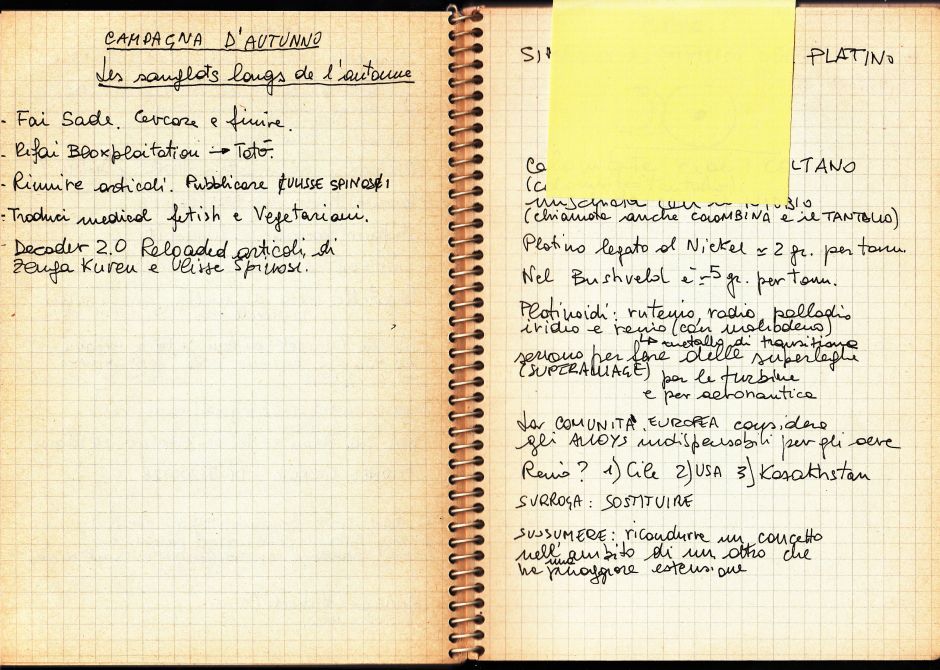 CAMPAGNA D'AUTUNNO
Les sanglots longs de l'automne
- Fai Sade. Cercare e finire.
- Rifai Bloxploitation → Totò.
- Riunire articoli. Pubblicare (ULISSE SPINOSI)
- Traduci medical fetish e Vegetariani.
- Decoder 2.0 Reloaded articoli di
Zenga Kuren e Ulisse Spinosi.
PLATINO
(chiamata anche COLOMBINA e il TANTALIO)
Platino legato al Nickel ≃ 2 gr. per tonn.
Nel Bushveld è ≃5 gr. per tonn.
Platinoidi: rutenio, rodio palladio
iridio e renio (con molibdeno)
↳ metallo di transizione
servono per fare delle superleghe
(SUPERALLIAGE) per le turbine
e per aeronautica
La COMUNITÀ EUROPEA considera
gli ALLOYS indispensabili per gli aerei
Renio? 1) Cile 2) USA 3) Kazakhstan
SURROGA: SOSTITUIRE
SUSSUMERE: ricondurre un concetto
nell'ambito di un altro che
ha una maggiore estensione